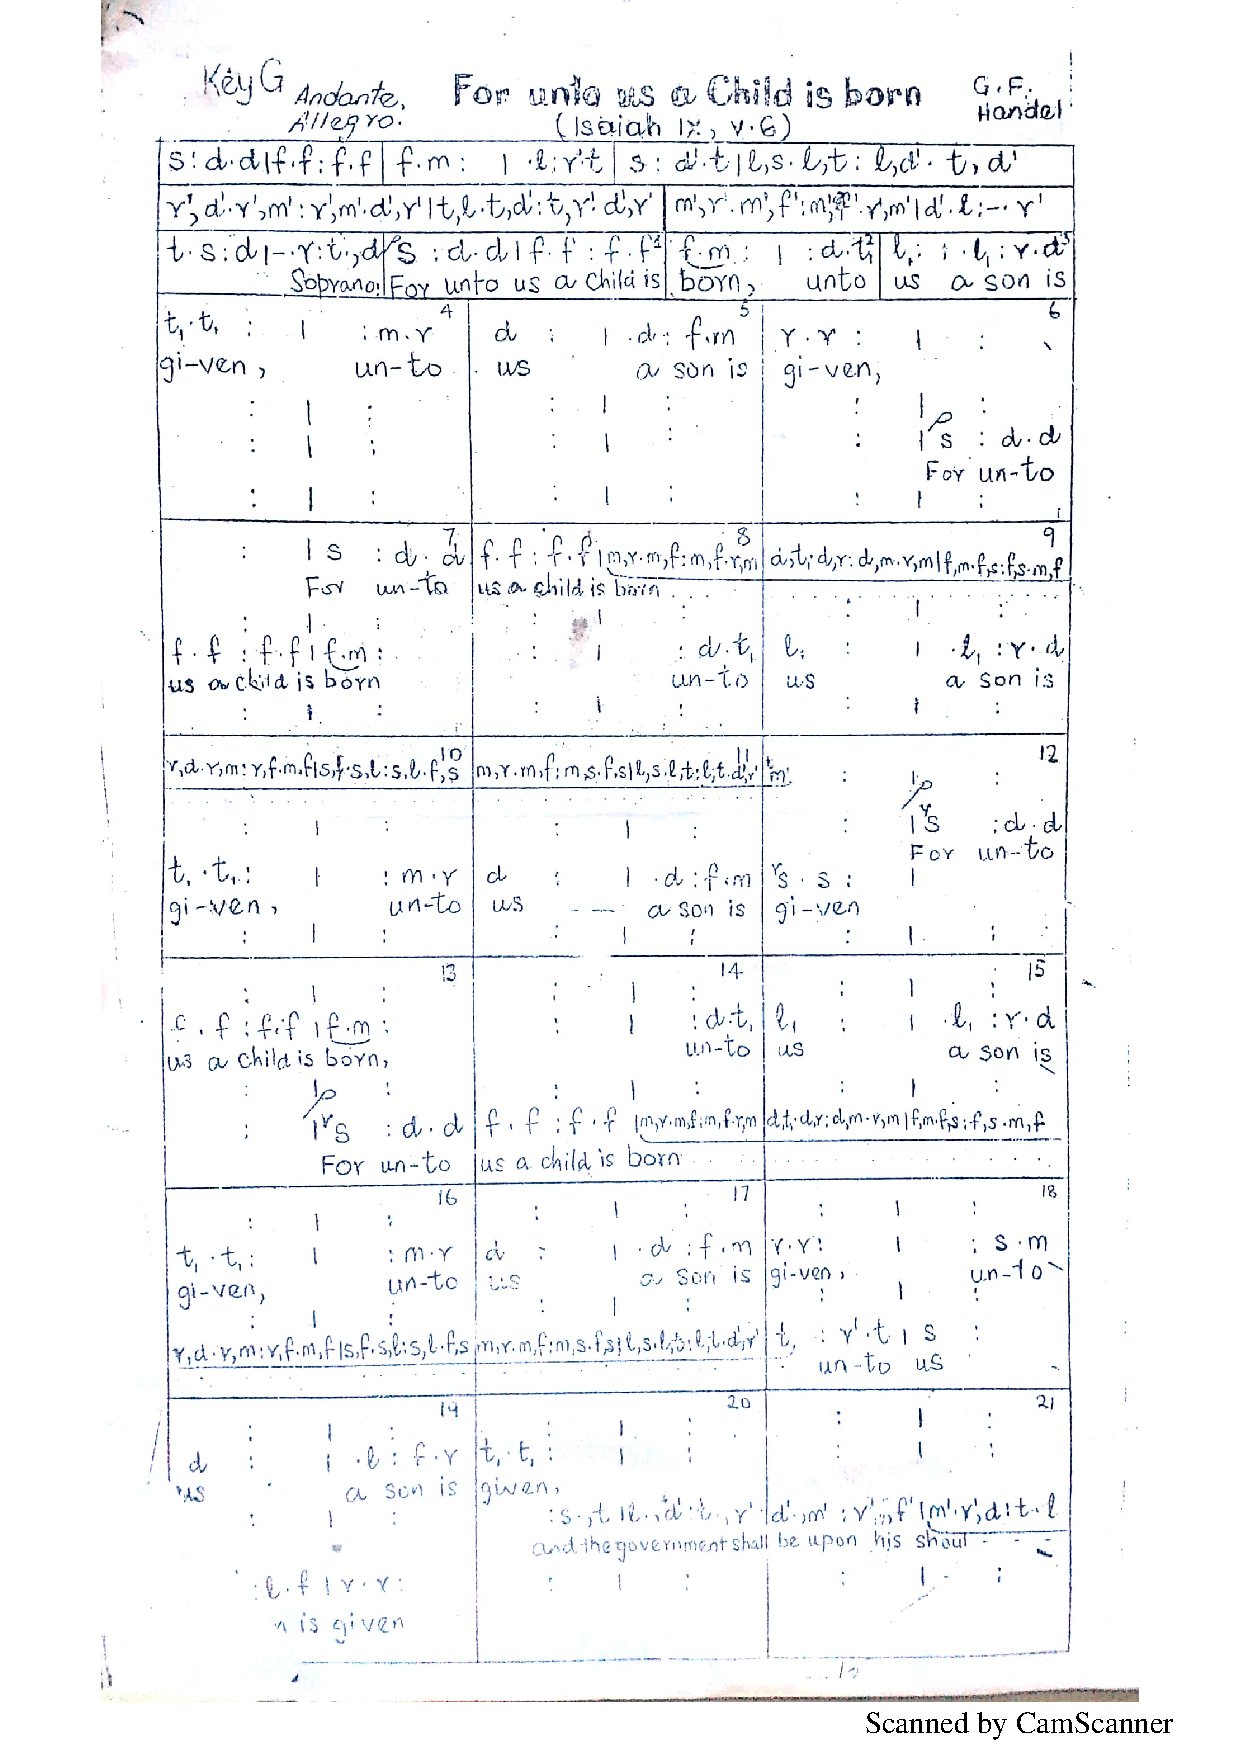 Key G Andante, Allegro. For unto us a Child is born G. F. Handel
(Isaiah IX, v.6)
s : d.d | f.f : f.f | f.m : | .l : r'.t | s : d'.t | l,s.l,t : l,d'.t,d'
r',d'.r',m' : r',m'.d',r' | t,l.t,d' : t,r'.d',r' | m',r'.m',f' : r',m' | d'.l : -.r'
t.s : d | -.r : t.,d | s : d.d | f.f : f.f 1 | f.m : | : d.t₁ 2 | l₁ : : .l₁ : r.d 3
Soprano. For unto us a child is born, unto us a son is
t₁.t₁ : | : m.r 4 | d : | .d : f.m 5 | r.r : | : 6
gi-ven, un-to us a son is gi-ven,
: | : : | : : | :
: | : : | : : | s : d.d
For un-to
: | : : | : : | :
: | s : d.d 7 | f.f : f.f | m,r.m,f : m,f.r,m 8 | d,t₁.d,r : d,m.r,m | f,m.f,s : f,s.m,f 9
For un-to us a child is born
: | : | : | :
f.f : f.f | f.m : | : | : d.t₁ | l₁ : | .l₁ : r.d
us a child is born un-to us a son is
: | : : | : : | :
r,d.r,m : r,f.m,f | s,f.s,l : s,l.f,s 10 | m,r.m,f : m,s.f,s | l,s.l,t : l,t.d',r' 11 | m' : | : 12
: | : : | : : | s : d.d
For un-to
t₁.t₁ : | : m.r | d : | .d : f.m | s.s : |
gi-ven, un-to us a son is gi-ven
: | : : | : : | :
13 14 15
: | : : | : : | :
f.f : f.f | f.m : | : | : d.t₁ | l₁ : | .l₁ : r.d
us a child is born, un-to us a son is
: : | : : | :
: | s : d.d | f.f : f.f | m,r.m,f : m,f.r,m | d,t₁.d,r : d,m.r,m | f,m.f,s : f,s.m,f
For un-to us a child is born
16 17 18
: | : : | : : | :
t₁.t₁ : | : m.r | d : | .d : f.m | r.r : | : s.m
gi-ven, un-to us a son is gi-ven, un-to
: | : : | : : | :
r,d.r,m : r,f.m,f | s,f.s,l : s,l.f,s | m,r.m,f : m,s.f,s | l,s.l,t : l,t.d',r' | t₁ : r'.t | s :
un-to us
19 20 21
: | : : | : : | :
d : | .l : f.r | t₁.t₁ : | : : | :
us a son is given,
: | : : s.,t | l.,d' : t.,r' | d'.,m' : r'.,f' | m'.r',d' : t.l
and the government shall be upon his shoul
: l.f | r.r : : | : : | :
is given
Scanned by CamScanner